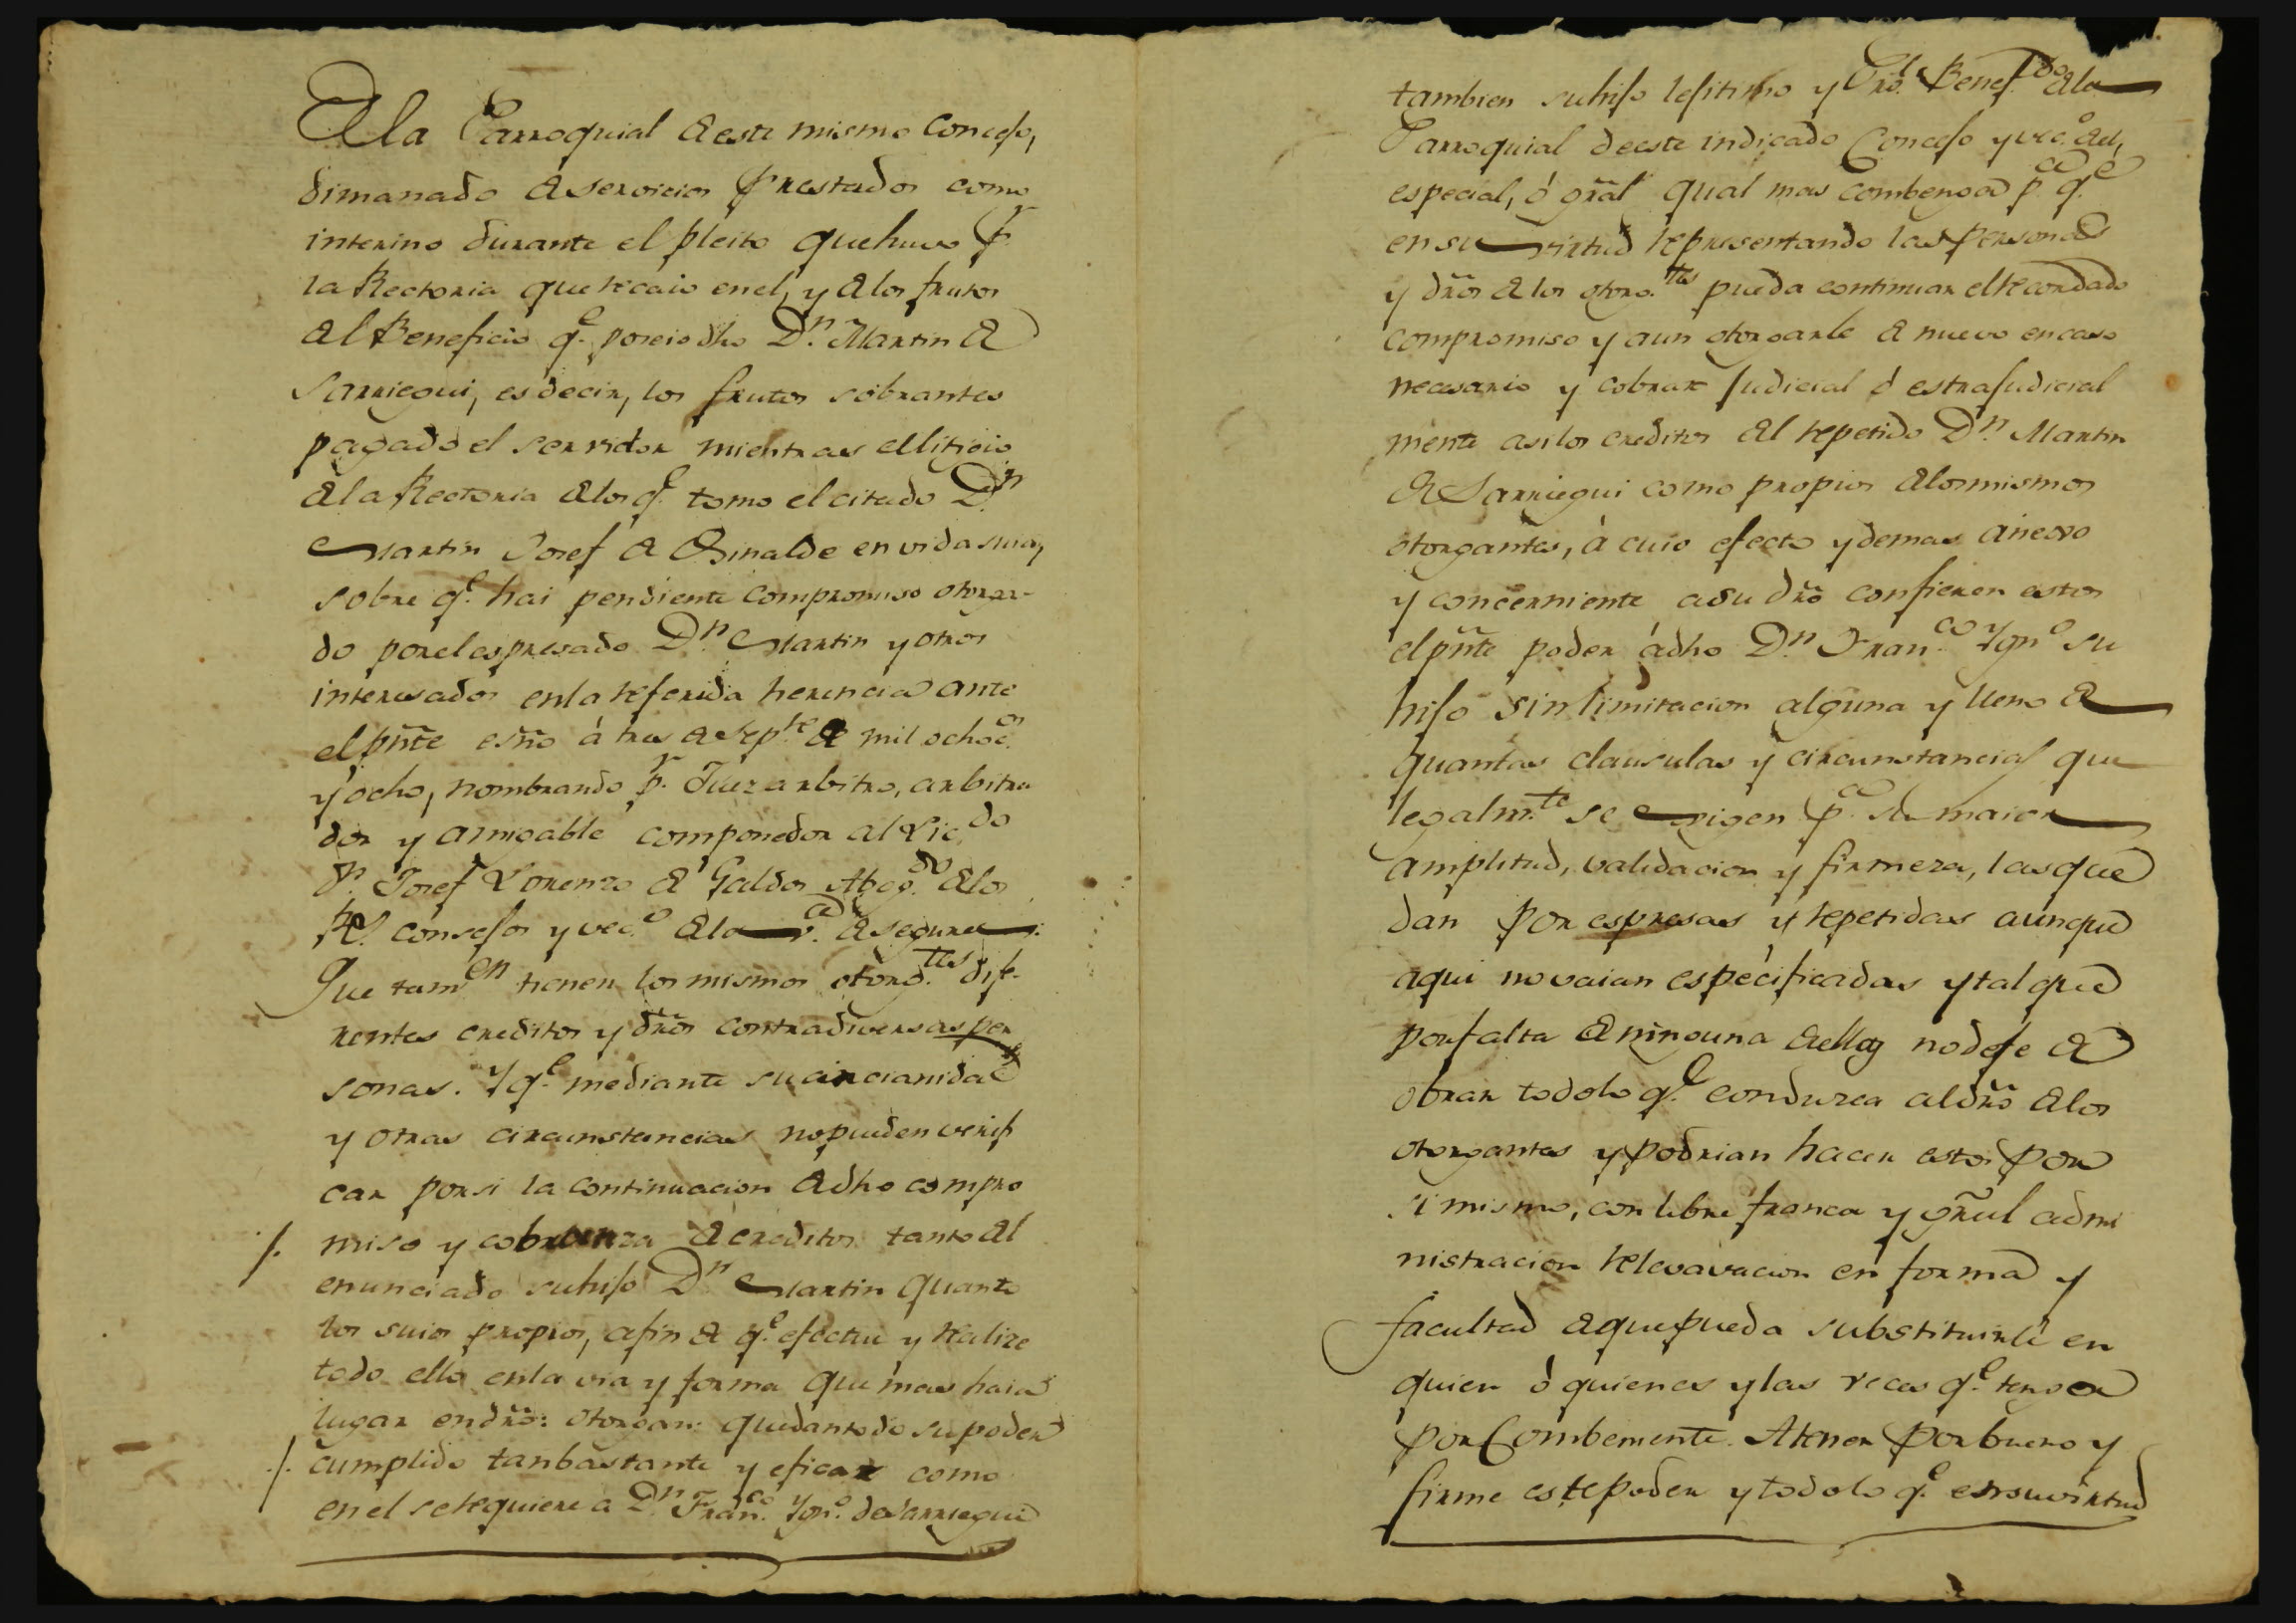 de la Parroquial de este mismo Concejo,
dimanado de servicios prestados como
interino durante el pleito que huvo pr.
la Rectoria que recaio en el, y de los frutos
del Beneficio qe. poseio dho Dn. Martin de
Sarriegui, es decir, los frutos sobrantes
pagado el servidor mientras el litigio
de la Rectoria de los qe. tomo el citado Dn.
Martin Josef de Osinalde en vida suia,
sobre qe. hai pendiente compromiso otorga-
do por el espresado Dn. Martin y otros
interesados en la referida herencia ante
el pñte esño á tres de Septe. de mil ochocs.
y ocho, nombrando pr. Juez arbitro, arbitra
dor y amigable componedor al Licdo.
Dn. Josef Lorenzo de Galdos Abogdo. de los
Rs. consejos y veco. de la va. de Segura.
Que tamen tienen los mismos otorgtes. dife-
rentes creditos y dros contra diversas per
sonas. Y qe. mediante su ancianidad
y otras circunstancias no pueden verifi
car por si la continuacion de dho compro
miso y cobranza de creditos tanto del
enunciado su hijo Dn. Martin quanto
los suios propios, a fin de qe. efectue y realize
todo ello en la via y forma que mas haia
lugar en dro: otorgan: que dan todo su poder
cumplido tan bastante y eficaz como
en el se requiere á Dn. Franco. Ygno. de Sarriegui
tambien su hijo lejitimo y Pro. Benefdo. de la
Parroquial de este indicado Concejo y veco. de el,
especial, ó gral qual mas combenga pa. qe.
en su virtud representando las personas
y dros de los otorgtes. pueda continuar el recordado
compromiso y aun otorgarle de nuevo en caso
necesario y cobrar judicial ó estrajudicial
mente asi los creditos del repetido Dn. Martin
de Sarriegui como propios de los mismos
otorgantes, á cuio efecto y demas anexo
y concerniente a su dro confieren estos
el pñte poder á dho Dn. Franco. Ygno. su
hijo sin limitacion alguna y lleno de
quantas clausulas y circunstancias que
legalmte. se exigen pa. su maior
amplitud, validacion y firmeza, las que
dan por espresas y repetidas aunque
aqui no vaian especificadas y tal que
por falta de ninguna de ellas no deje de
obrar todo lo qe. conduzca al dro de los
otorgantes y podrian hacer estos por
si mismo, con libre franca y gral admi
nistracion relevavacion en forma y
facultad de que pueda substituirle en
quien ó quienes y las veces qe. tenga
por Combeniente. A tener por bueno y
firme este poder y todo lo qe. en su virtud